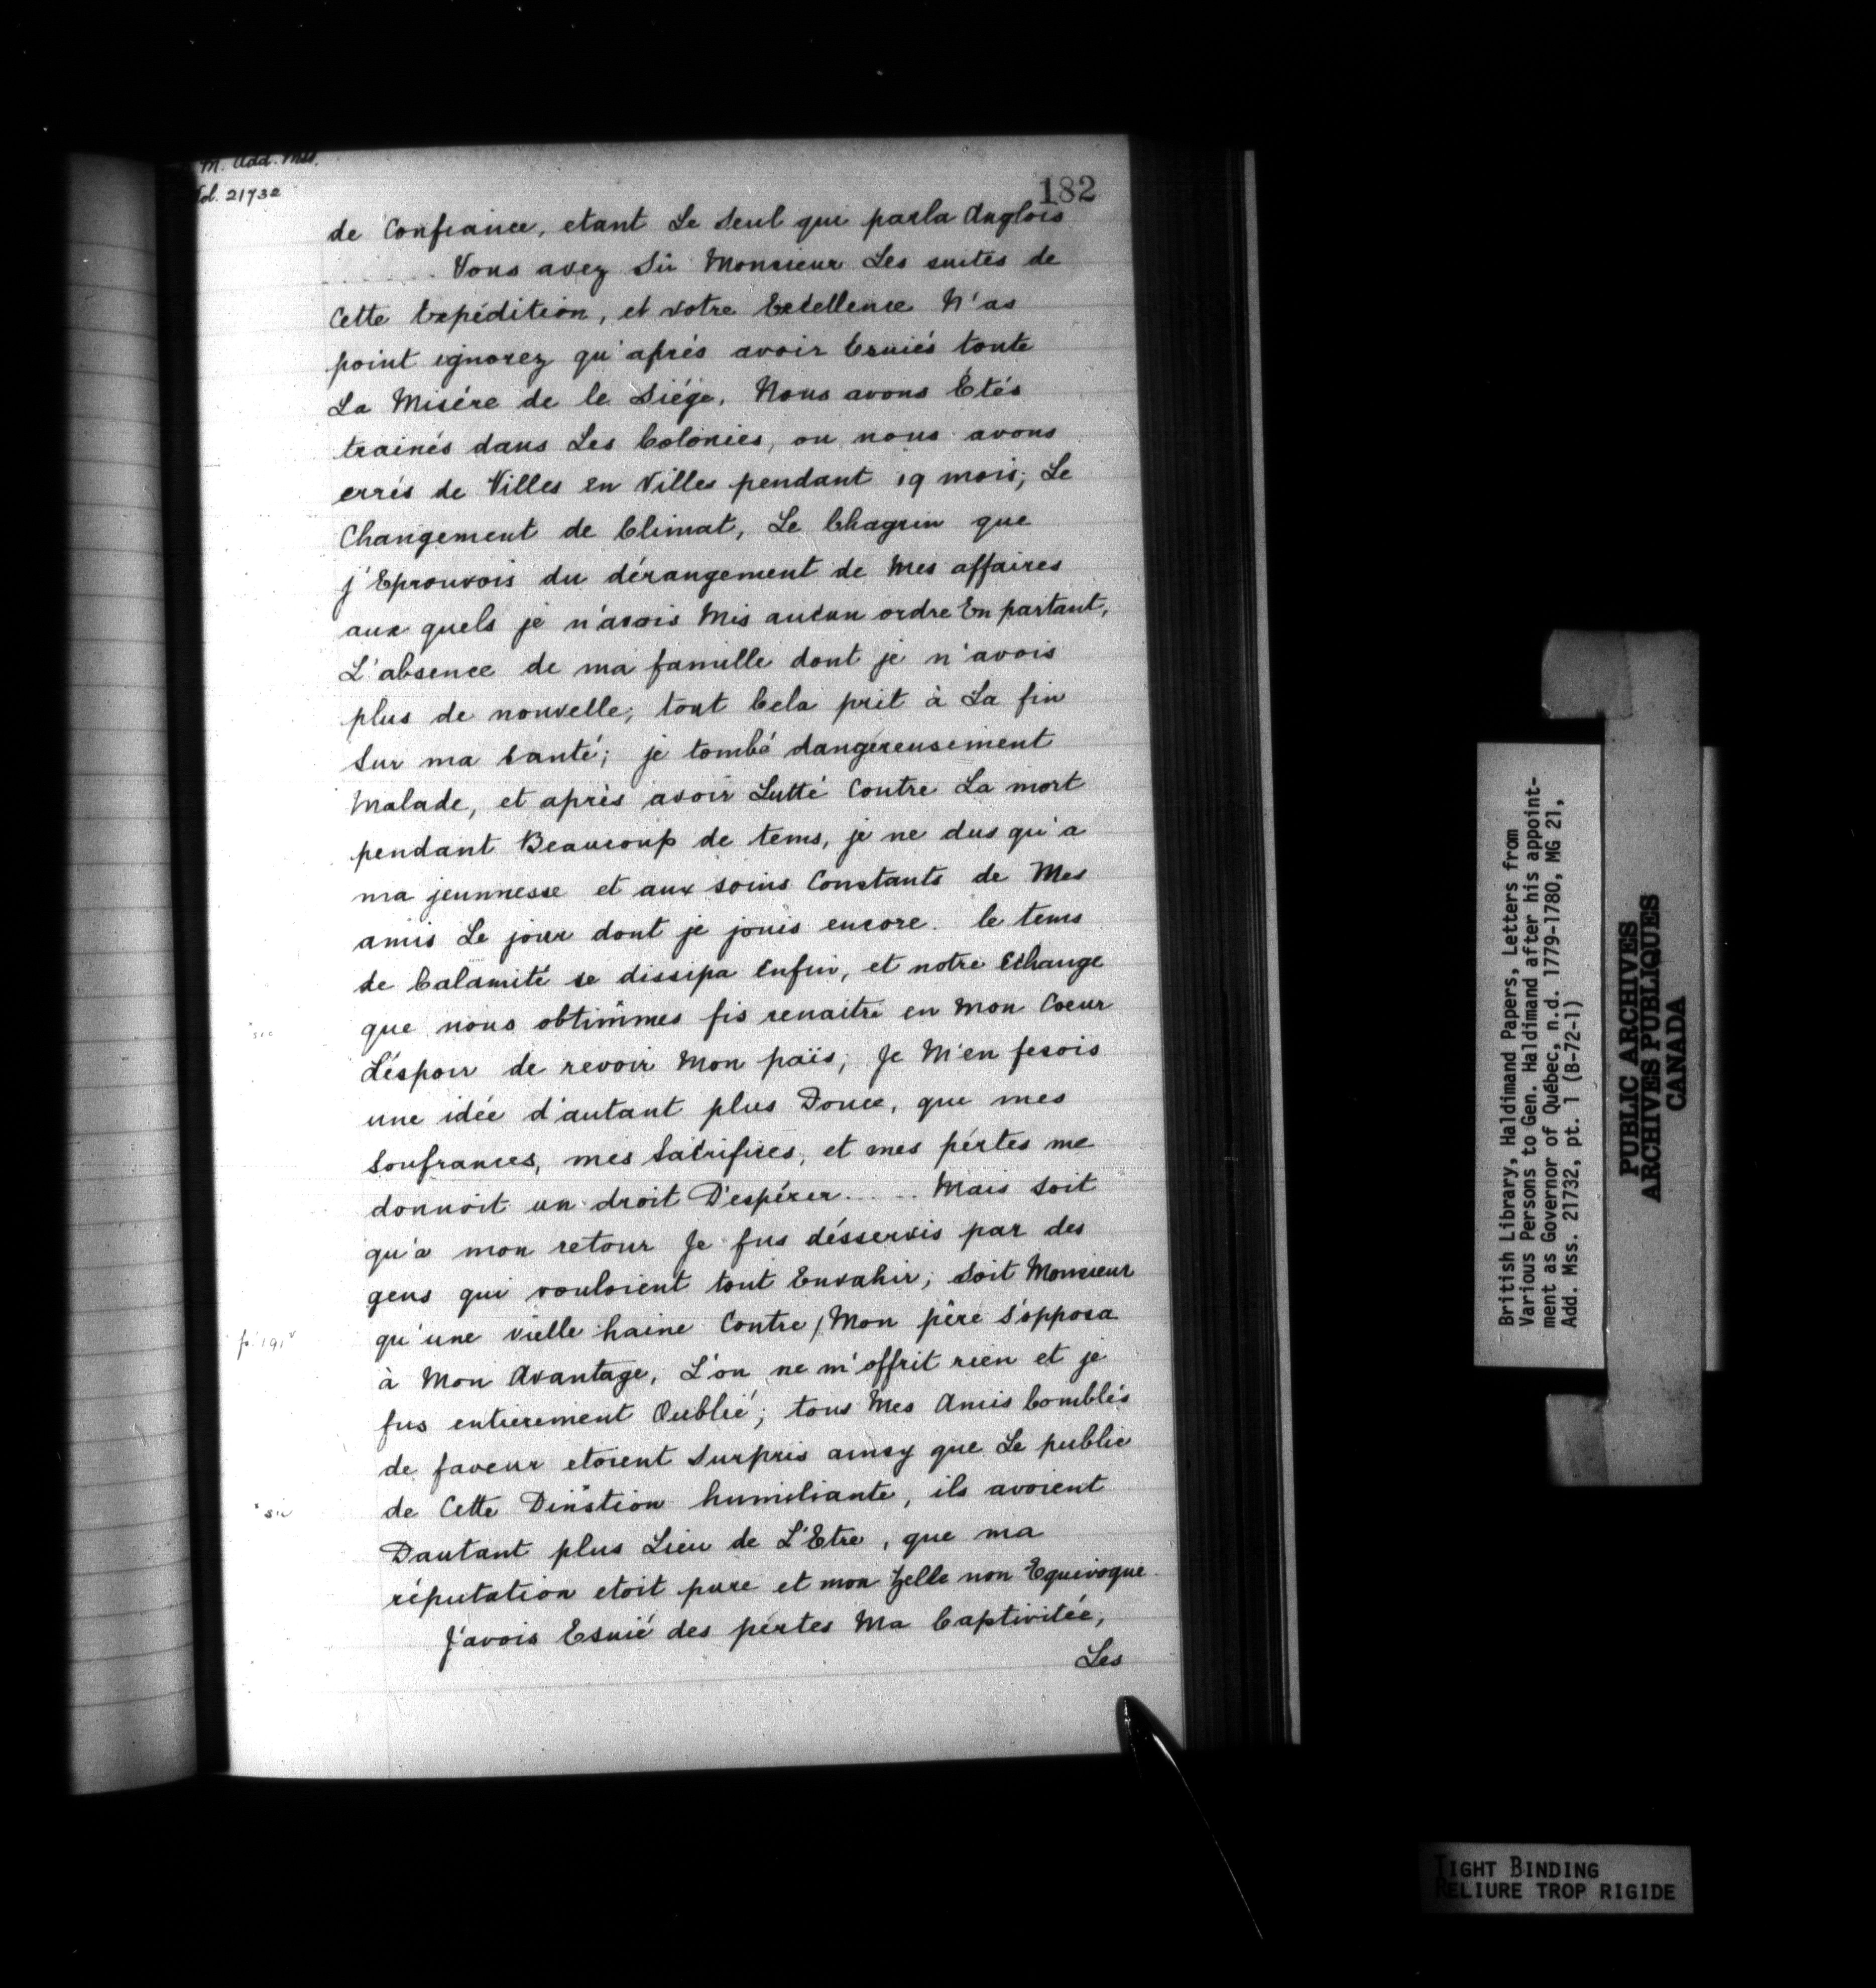 M. Add. Mss.
Vol. 21732
182
de Confiance, etant Le Seul qui parla Anglois
Vous avez Sù Monsieur Les suites de
Cette Expédition, et votre Excellence N'as
point ignorez qu'aprés avoir Esuiés toute
La Misére de le Siége, Nous avons Étés
trainés dans Les Colonies, ou nous avons
errés de Villes en Villes pendant 19 mois; Le
Changement de Climat, Le Chagrin que
j'Eprouvois du dérangement de Mes affaires
aux quels je n'avois Mis aucun ordre En partant,
L'absence de ma famille dont je n'avois
plus de nouvelle; tout Cela prit à La fin
Sur ma Santé; je tombé dangereusement
Malade, et après avoir Lutté Contre La mort
pendant Beaucoup de tems, je ne dus qu'a
ma jeunnesse et aux soins Constants de Mes
amis Le jour dont je jouis encore. le tems
de Calamité se dissipa Enfin, et notre Echange
que nous obtimmes fis renaitre en Mon Coeur
sic
L'éspoir de revoir Mon païs; Je M'en fesois
une idée d'autant plus Douce, que mes
Soufrances, mes Sacrifices, et mes pértes me
donnoit un droit D'espérer..... Mais Soit
qu'a mon retour Je fus désservis par des
gens qui vouloient tout Envahir; Soit Monsieur
qu'une vielle haine Contre / Mon père S'opposa
fo. 191v
à Mon Avantage, L'on ne m'offrit rien et je
fus entierement Oublié; tous Mes Amis Comblés
de faveur etoient Surpris ainsy que Le public
de Cette Dinstion humiliante, ils avoient
sic
Dautant plus Lieu de L'Etre, que ma
réputation etoit pure et mon Zelle non Equivoque
J'avois Esuié des pértes Ma Captivitée,
Les
British Library, Haldimand Papers, Letters from
Various Persons to Gen. Haldimand after his appoint-
ment as Governor of Québec, n.d. 1779-1780, MG 21,
Add. Mss. 21732, pt. 1 (B-72-1)
PUBLIC ARCHIVES
ARCHIVES PUBLIQUES
CANADA
TIGHT BINDING
RELIURE TROP RIGIDE